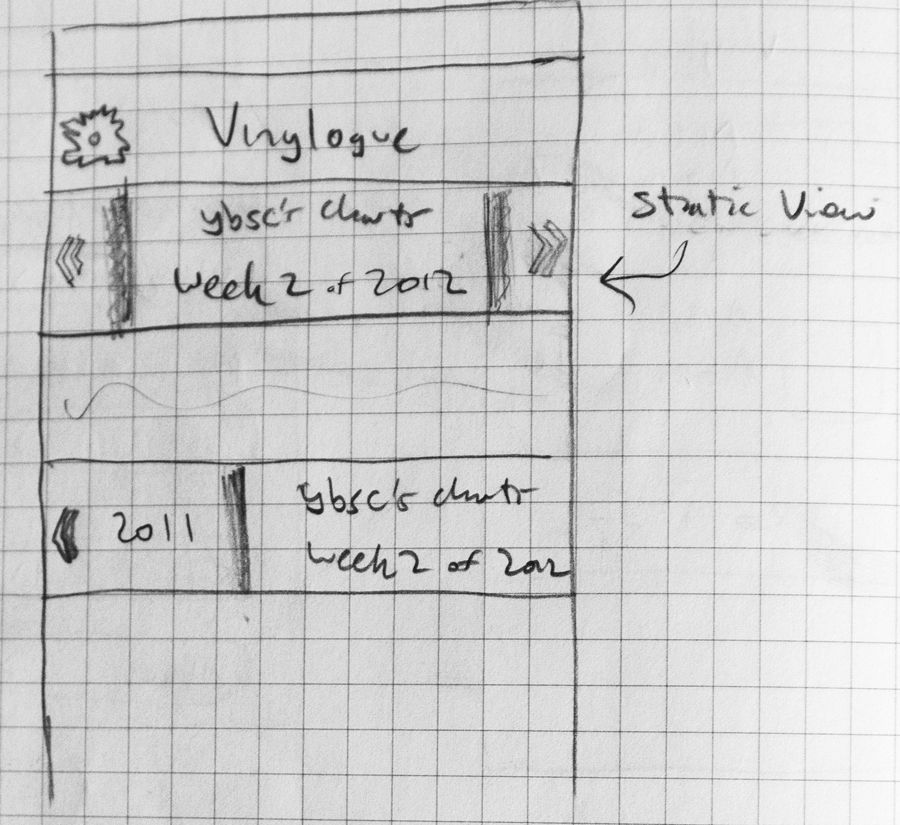 Vinylogue
ybsc's charts
week 2 of 2012
Static View
2011
ybsc's charts
week 2 of 2012